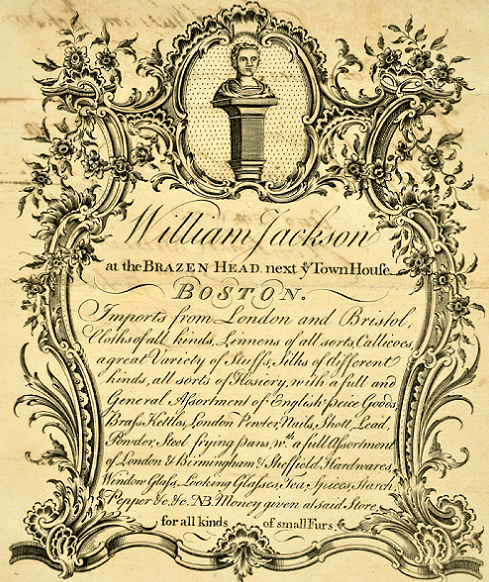 William Jackson
at the BRAZEN HEAD next yͤ Town Houſe
BOSTON.
Imports from London and Bristol,
Cloths of all kinds, Linnens of all sorts, Callicoes,
a great Variety of Stuffs, Silks of different
kinds, all sorts of Hosiery, with a full and
General Aſsortment of English-peice Goods,
Braſs Kettles, London Pewter, Nails, Shott, Lead,
Powder, Steel frying pans, wᵗʰ a full Aſsortment
of London & Birmingham & Sheffield Hardwares,
Window Glaſs, Looking Glaſses, Tea, Spices, Starch,
Pepper &c &c. NB. Money given at said Store,
for all kinds of small Furs.